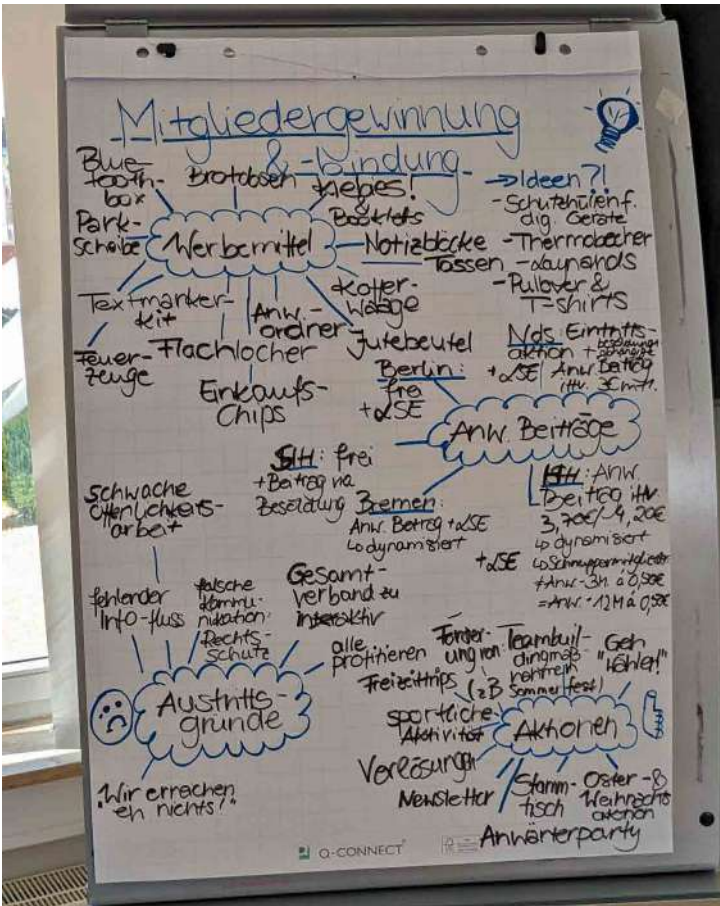 Mitgliedergewinnung
& -bindung
Blue-
tooth-
box
Brotdosen
Park-
scheibe
Booklets
Werbemittel
Notizblöcke
Tassen
Koffer-
Waage
Textmarker-
kit
Anw.-
ordner
Jutebeutel
Feuer-
zeuge
Flachlocher
Einkaufs-
Chips
→ Ideen?!
- Schutzhüllen f.
dig. Geräte
- Thermobecher
- Laynards
- Pullover &
T-shirts
Anw. Beiträge
Berlin:
frei
+ LSE
Nds: Eintritts-
aktion +
+ LSE
Anw. Beitrag
ihv. 3€ mtl.
SH: frei
+ Beitrag na
Besoldung
Bremen:
Anw. Beitrag + LSE
↳ dynamisiert
HH: Anw.
Beitrag ihv
3,70€/4,20€
↳ dynamisiert
+ LSE
↳ Schnuppermitglieder
= Anw. - 12M á 0,50€
schwache
Öffenlichkeits-
arbeit
fehlender
Info-fluss
falsche
Kommu-
nikation:
Rechts-
schutz
Gesamt-
verband zu
alle
profitieren
Austritts-
gründe
"Wir erreichen
eh nichts!"
Förder-
ung von
Freizeittrips
Teambuil-
dingmaß-
nahmen
(zB Sommerfest)
Geh
"Höhler!"
sportliche
Aktivität
Aktionen
Verlosungen
Newsletter
Stamm-
tisch
Oster- &
Weihnachts
aktionen
Anwärterparty
Q-CONNECT